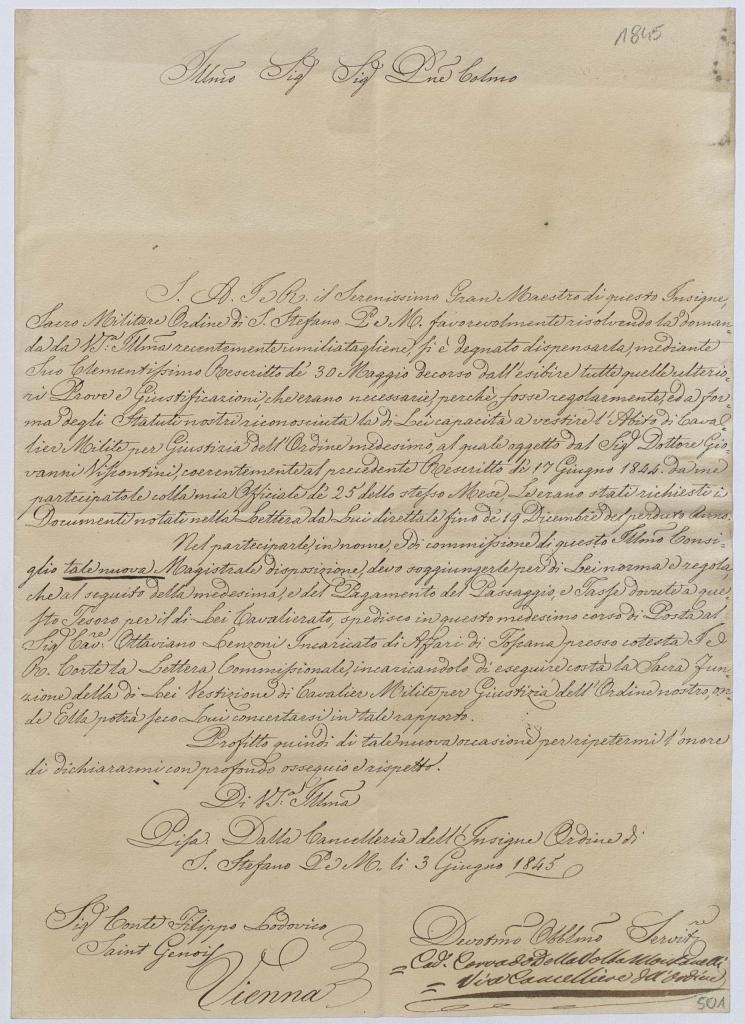 1845
Illmo Sigr Sigr Pne Colmo
S. A. I. e R. il Serenissimo Gran Maestro di questo Insigne,
Sacro Militare Ordine di S. Stefano P. e M. favorevolmente risolvendo la doman-
da da V.S. Illma recentemente umiliatagliene, si è degnato dispensarla, mediante
Suo Clementissimo Rescritto de' 30 Maggio decorso dall'esibire tutte quelle ulterio-
ri Prove e Giustificazioni, che erano necessarie, perchè fosse regolarmente, ed a for-
ma degli Statuti nostri riconosciuta la di Lei capacità a vestire l'Abito di Caval-
lier Milite per Giustizia dell'Ordine medesimo, al quale oggetto dal Sigr Dottore Gio-
vanni Viscontini, coerentemente al precedente Rescritto de' 17 Giugno 1844. da me
partecipatole colla mia Officiale de' 25 dello stesso Mese, Le erano stati richiesti i
Documenti notati nella Lettera da Lui direttale fino de' 19 Dicembre del perduto Anno.
Nel parteciparle, in nome, e di commissione di questo Illmo Consi-
glio tale nuova Magistrale disposizione, devo soggiungerle per di Lei norma e regola,
che al seguito della medesima, e del Pagamento del Passaggio, e Tasse dovute a que-
sto Tesoro per il di Lei Cavalierato, spedisco in questo medesimo corso di Posta al
Sigr Cavre Ottaviano Lenzoni Incaricato di Affari di Toscana presso cotesta I. e
R. Corte la Lettera Commissionale, incaricandolo di eseguire costà la Sacra Fun-
zione della di Lei Vestizione di Cavalier Milite per Giustizia dell'Ordine nostro, on-
de Ella potrà seco Lui concertarsi in tale rapporto.
Profitto quindi di tale nuova occasione per ripetermi l'onore
di dichiararmi con profondo ossequio e rispetto.
Di V.S. Illma
Pisa. Dalla Cancelleria dell'Insigne Ordine di
S. Stefano P. e M. li 3 Giugno 1845
Sigr Conte Filippo Lodovico
Saint Genois
Vienna
Devotmo Obblmo Servitre
= Cav. Corrado Della Volta
= Vice Cancelliere dell'Ordine
501